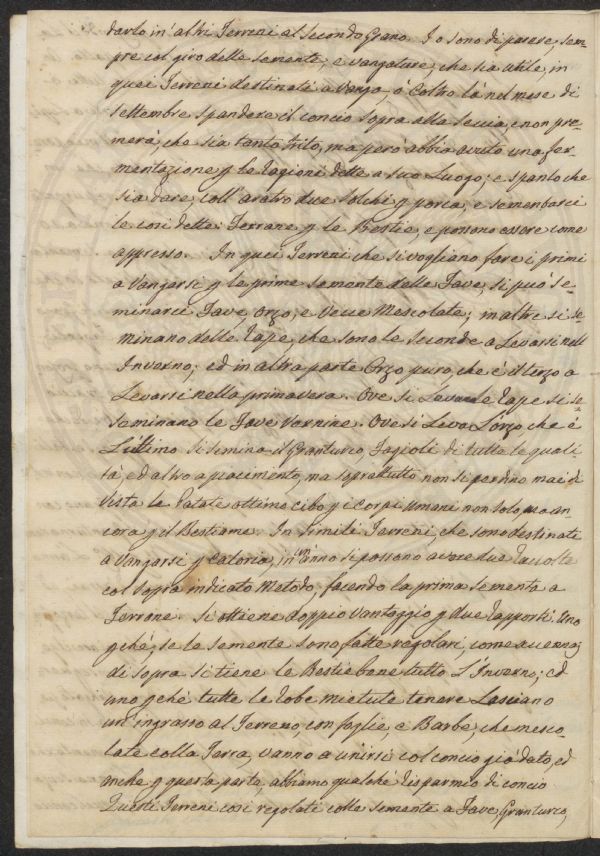 darlo in'altri Terreni al secondo Grano. Io sono di parere, sem=
pre col giro delle semente, e vangature, che sia utile, in
quei Terreni destinati a Vanga, ò Coltro là nel mese di
settembre spandere il concio sopra alla seccia, e non pre=
merà, che sia tanto trito, ma però abbia avuto una fer=
mentazione p le ragioni dette a suo Luogo; e spanto che
sia dare, coll'aratro due solchi p porca, e sementarci
le così dette: Ferrane p le Bestie, e possono essere come
appresso. In quei Terreni che si vogliano fare i primi
a Vangarsi p la prima sementa delle Fave, si può se=
minarce Fave, Orzo, e Vecce Mescolate; in altri si se=
minano delle Rape, che sono le seconde a Levarsi nell'
Inverno; ed in altra parte Orzo puro, che è il terzo a
Levarsi nella primavera. Ove si Levano le rape si se=
seminano le Fave Vernine. Ove si Leva L'orzo che è
L'ultimo si semina il Granturco, Fagioli di tutte le quali
tà, ed altro a piacimento, ma soprattutto non si perdino mai di
Vista le Patate ottimo cibo p i corpi umani non solo, ma an=
cora p il Bestiame. In simili Terreni, che sono destinati
a Vangarsi p Caloria, in un'anno si possono avere due raccolte
col sopra indicato Metodo, facendo la prima sementa a
Ferrane. Si ottiene doppio vantaggio p due rapporti. Uno
pchè, se la semente sono fatte regolari, come accenno
di sopra si tiene le Bestie bene tutto L'Inverno; ed
uno pchè tutte le robe mietute tenere Lasciano
un'ingrasso al Terreno, con foglie, e Barbe, che mesco=
late colla Terra, vanno a unirsi col concio già dato, ed
anche p questa parte, abbiamo qualche risparmio di concio
Questi Terreni così regolati colle semente a Fave, Granturco,